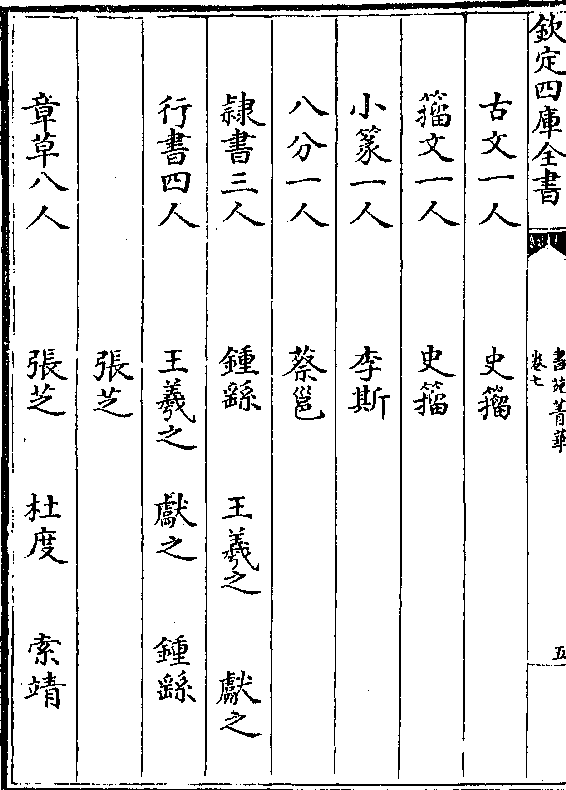 欽定四庫全書
書苑菁華
卷七
五
古文一人 史籀
籀文一人 史籀
小篆一人 李斯
八分一人 蔡邕
隸書三人 鍾繇 王羲之 獻之
行書四人 王羲之 獻之 鍾繇
張芝
章草八人 張芝 杜度 索靖